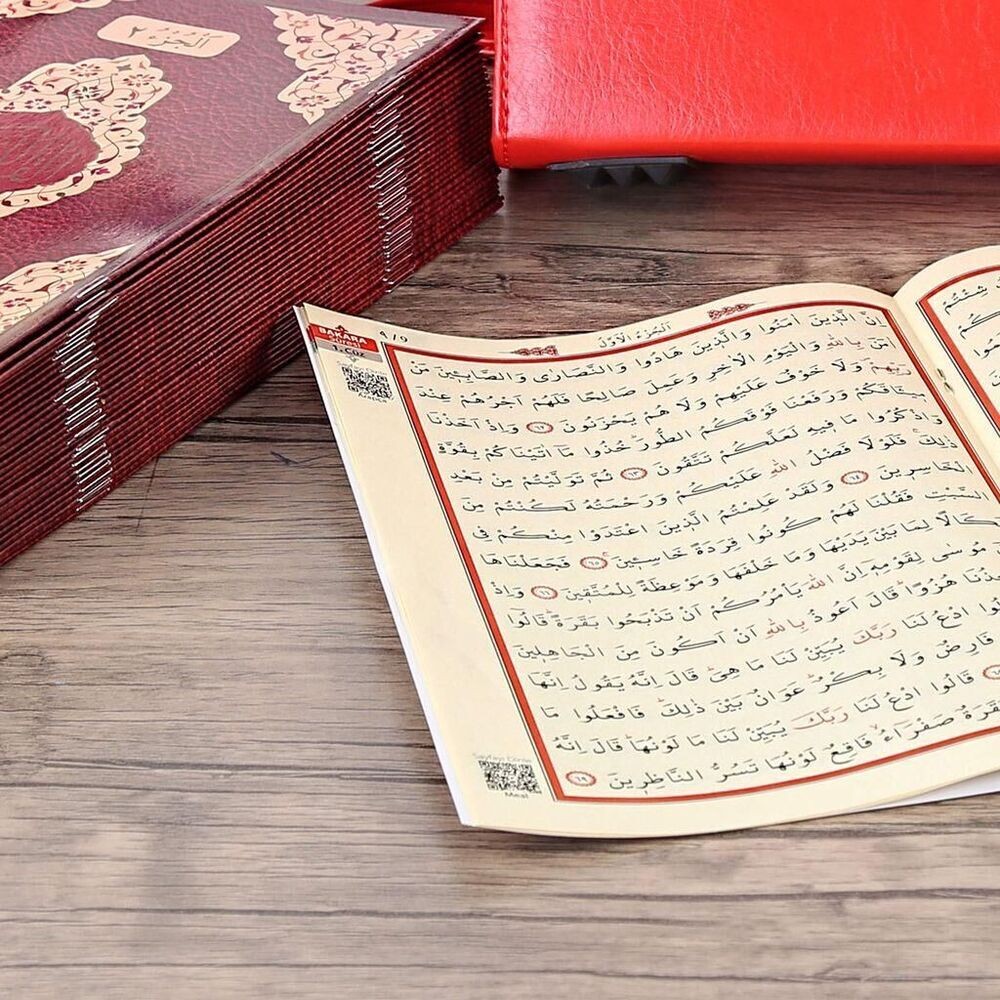 BAKARA
Sûresi
1. Cüz
٩ / 9
اَلْجُزْءُ الْاَوَّلُ
اِنَّ الَّذ۪ينَ اٰمَنُوا وَالَّذ۪ينَ هَادُوا وَالنَّصَارٰى وَالصَّابِـ۪ٔينَ مَنْ
اٰمَنَ بِاللّٰهِ وَالْيَوْمِ الْاٰخِرِ وَعَمِلَ صَالِحًا فَلَهُمْ اَجْرُهُمْ عِنْدَ
رَبِّهِمْ وَلَا خَوْفٌ عَلَيْهِمْ وَلَا هُمْ يَحْزَنُونَ ٦٢ وَاِذْ اَخَذْنَا
م۪يثَاقَكُمْ وَرَفَعْنَا فَوْقَكُمُ الطُّورَ خُذُوا مَٓا اٰتَيْنَاكُمْ بِقُوَّةٍ
وَاذْكُرُوا مَا ف۪يهِ لَعَلَّكُمْ تَتَّقُونَ ٦٣ ثُمَّ تَوَلَّيْتُمْ مِنْ بَعْدِ
ذٰلِكَ فَلَوْلَا فَضْلُ اللّٰهِ عَلَيْكُمْ وَرَحْمَتُهُ لَكُنْتُمْ مِنَ
الْخَاسِر۪ينَ ٦٤ وَلَقَدْ عَلِمْتُمُ الَّذ۪ينَ اعْتَدَوْا مِنْكُمْ فِي
السَّبْتِ فَقُلْنَا لَهُمْ كُونُوا قِرَدَةً خَاسِـ۪ٔينَ ٦٥ فَجَعَلْنَاهَا
نَكَالًا لِمَا بَيْنَ يَدَيْهَا وَمَا خَلْفَهَا وَمَوْعِظَةً لِلْمُتَّق۪ينَ ٦٦ وَاِذْ
مُوسٰى لِقَوْمِه۪ٓ اِنَّ اللّٰهَ يَاْمُرُكُمْ اَنْ تَذْبَحُوا بَقَرَةً قَالُٓوا
هُزُوًا قَالَ اَعُوذُ بِاللّٰهِ اَنْ اَكُونَ مِنَ الْجَاهِل۪ينَ
ادْعُ لَنَا رَبَّكَ يُبَيِّنْ لَنَا مَا هِيَ قَالَ اِنَّهُ يَقُولُ اِنَّهَا
فَارِضٌ وَلَا بِكْرٌ عَوَانٌ بَيْنَ ذٰلِكَ فَافْعَلُوا مَا
قَالُوا ادْعُ لَنَا رَبَّكَ يُبَيِّنْ لَنَا مَا لَوْنُهَا قَالَ اِنَّهُ
صَفْرَٓاءُ فَاقِعٌ لَوْنُهَا تَسُرُّ النَّاظِر۪ينَ ٦٩
Meal
شِئْتُمْ